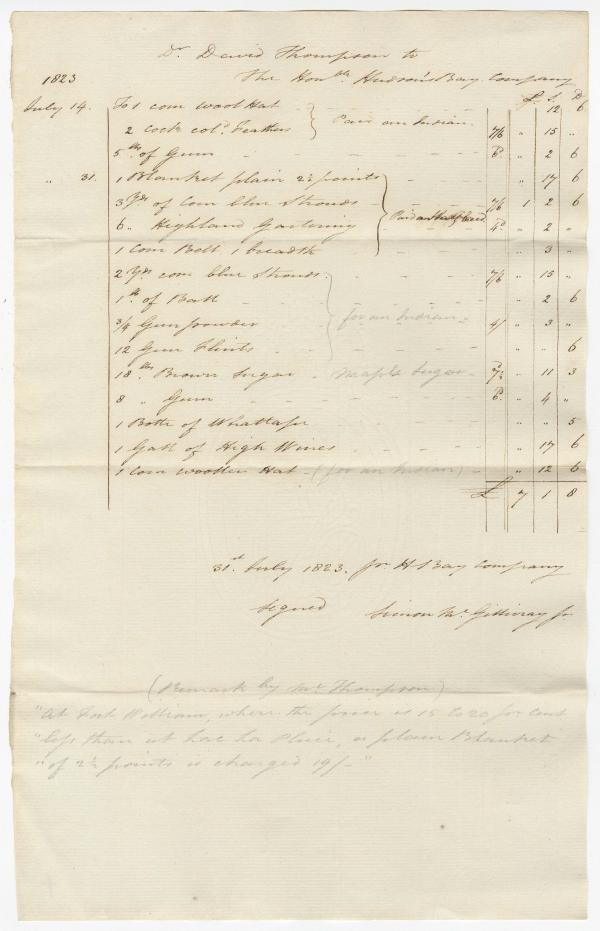 Dr. David Thompson to
1823 The Honble. Hudson's Bay Company
£. S. D
July 14. To 1 com wool Hat - - - 12 6
2 Cock cold. Feathers } Paid an Indian. 7/6 " 15 "
5 lbs of Gum - - - - 6d. " 2 6
" 31. 1 Blanket plain 2½ points - - - " 17 6
3 Yds of Com blue Strouds - - - 7/6 1 2 6
6 " Highland Gartering } Paid an half breed 4d " 2 "
1 Com Belt 1 breadth - - - " 3 "
2 Yds com blue Strouds - - - 7/6 " 15 "
1 lb. of Ball - - - - " 2 6
3/4 Gunpowder - - } for an Indian - 4/ " 3 "
12 Gun Flints - - - - " " 6
18 lbs Brown Sugar - Maple Sugar - 7½d " 11 3
8 " Gum - - - - 6d. " 4 "
1 Botte of Whattape - - - - " " 5
1 Gall of High Wines - - - - " 17 6
1 Com woollen Hat - (for an Indian) - " 12 6
£ 7 1 8
31st. July 1823. for H S Bay Company
Signed Simon Mc. Gillivray Jr.
(Remark by Mr. Thompson)
"At Fort William, where the price is 15 to 20 per Cent
"less than at Lac La Pluie, a plain Blanket
"of 2½ points is charged 19/-"